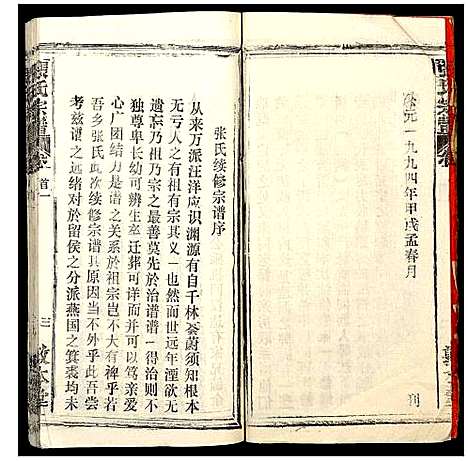 张氏宗谱
公元一九九四年甲戌孟春月
刊
张氏续修宗谱序
从来万派汪洋应识渊源有自千林蓊蔚须知根本
无亏人之有祖有宗其义一也然而世远年湮欲无
遗忘乃祖乃宗之最善莫先於治谱谱一得治则亲
独尊卑长幼可辨生卒迁葬可详而并可以笃亲爱
心广团结力是谱之关系於祖宗岂不大有裨乎若
吾乡张氏此次续修宗谱具原因当不外乎此吾尝
考兹谱之远绪对於留侯之分派燕国之箕裘均未
张氏宗谱
首一
三
敦本堂